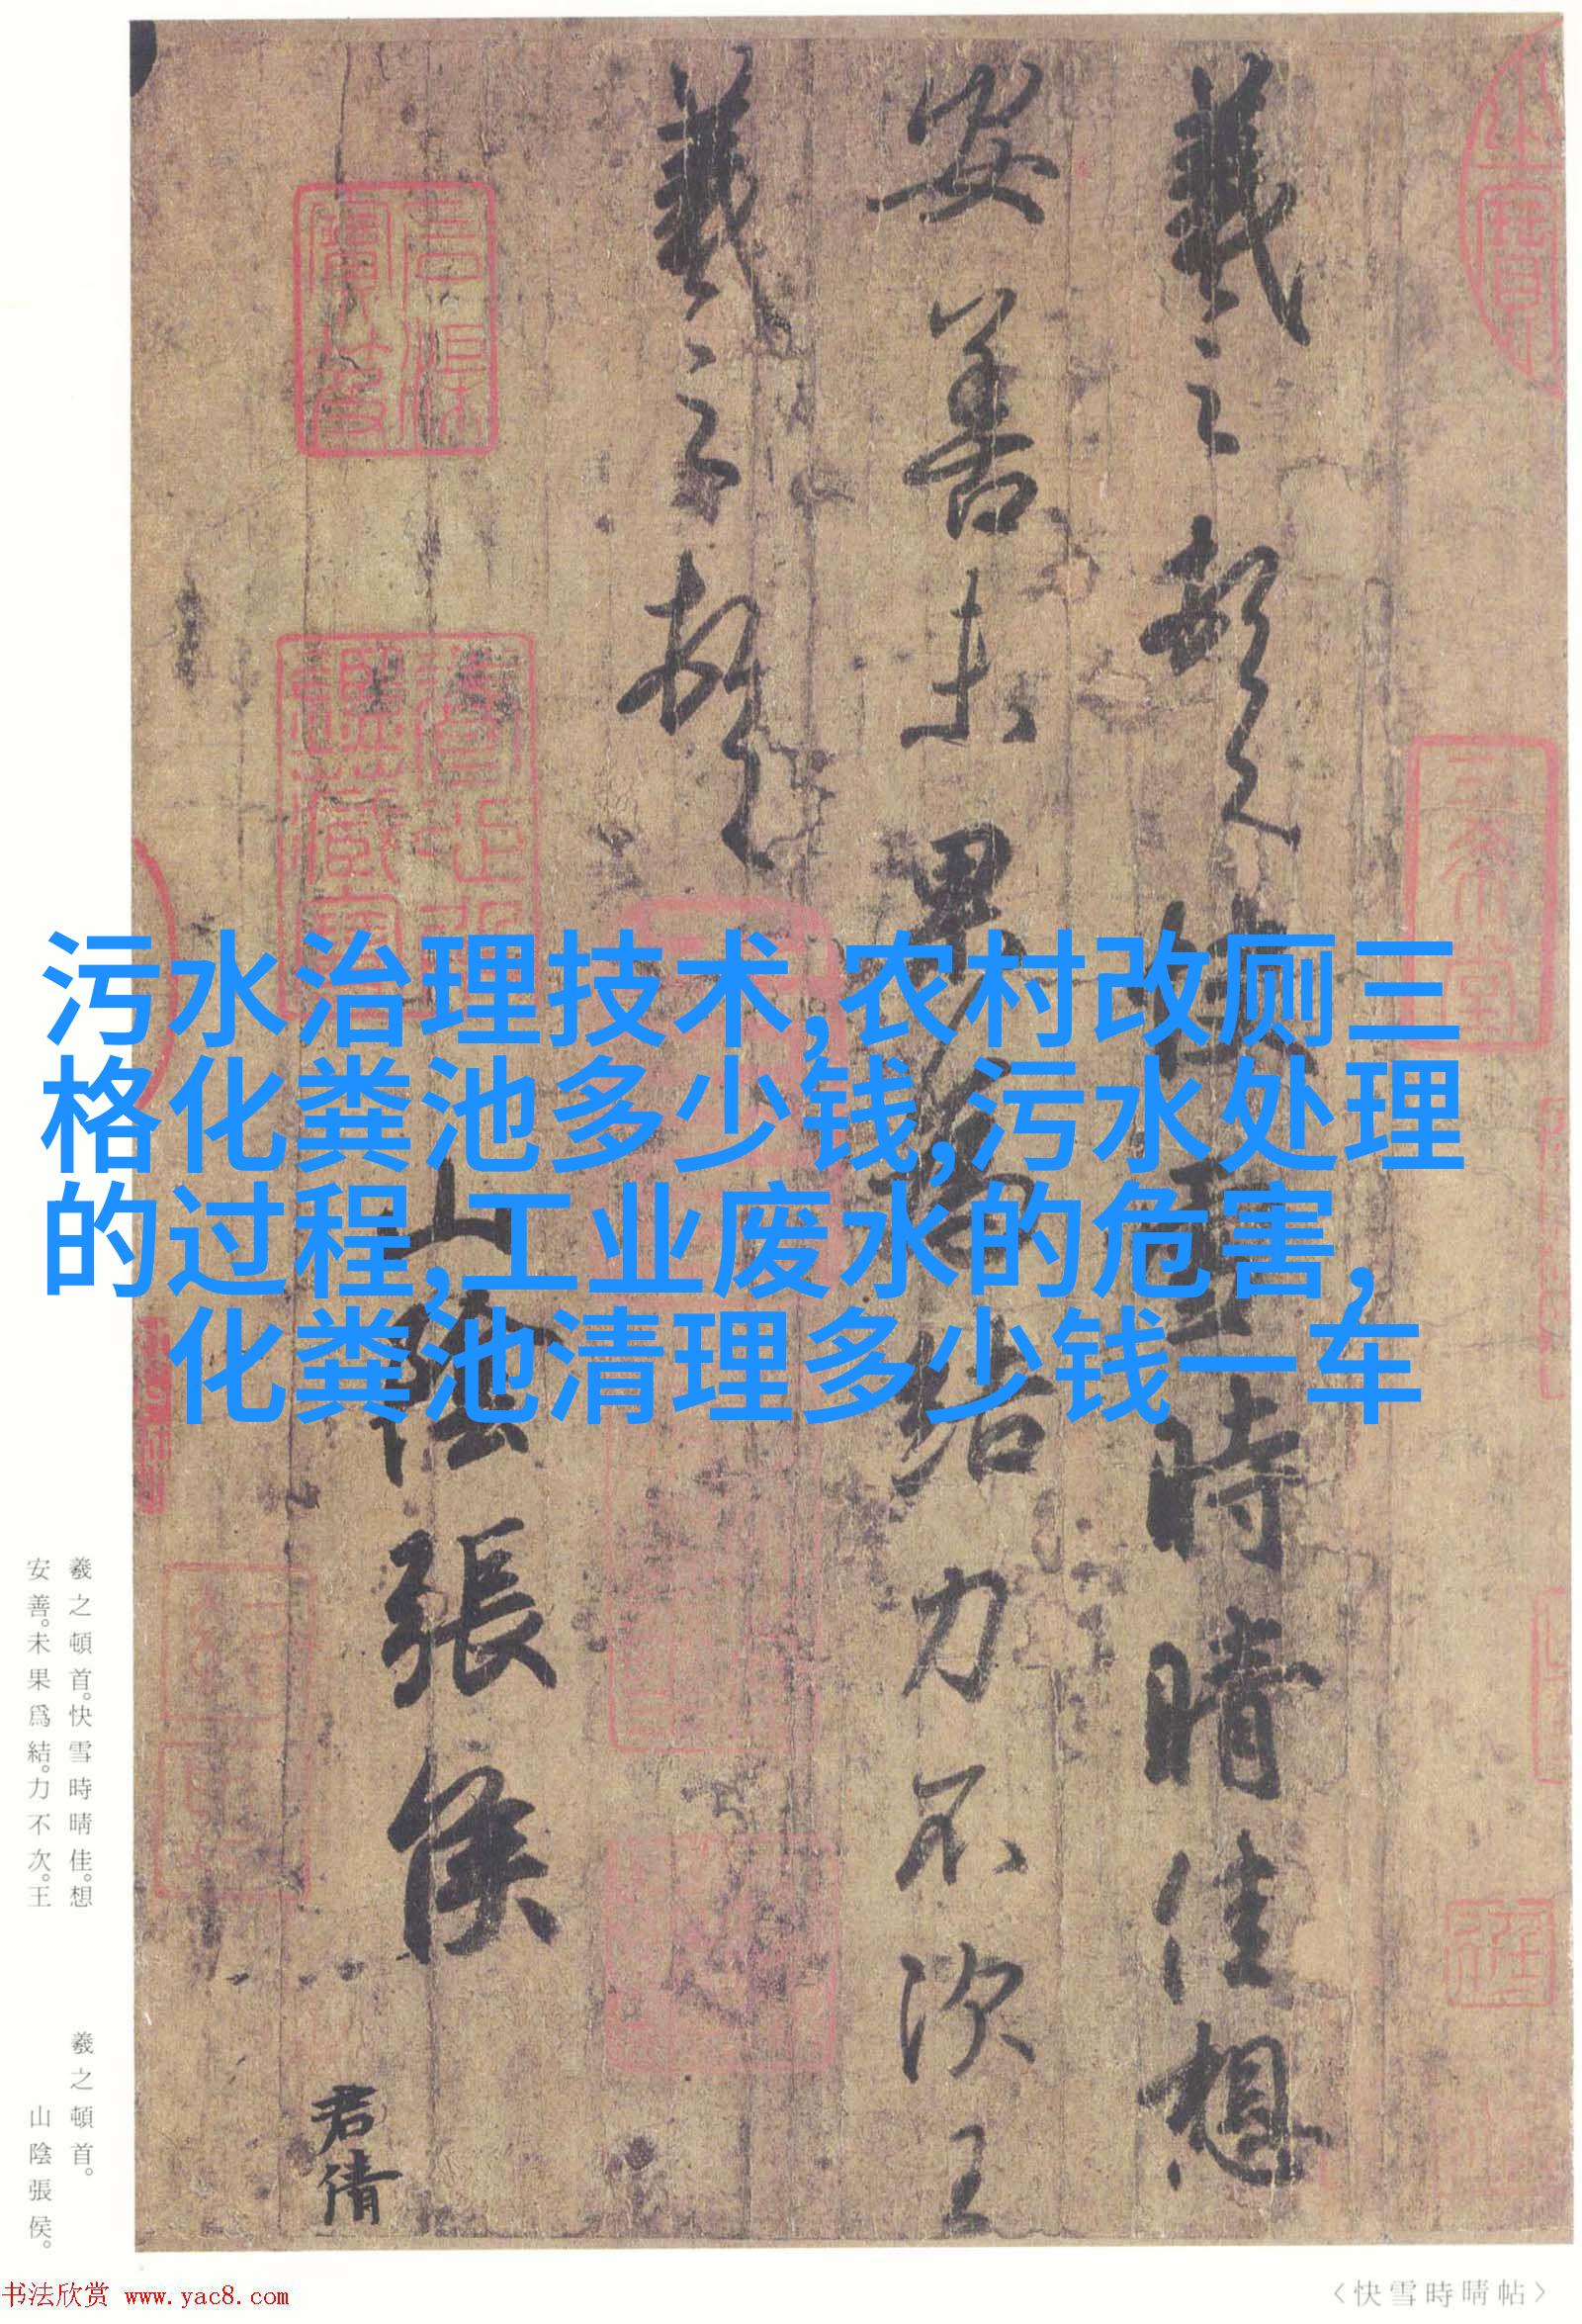 羲之頓首快雪時晴佳想
安善未果為結力不次王
羲之頓首
山陰張侯
君倩
污水治理技术,农村改厕三
格化粪池多少钱,污水处理
的过程,工业废水的危害,
化粪池清理多少钱一车
羲之頓首。快雪時晴佳。想
安善。未果爲結。力不次。王
羲之頓首。
山陰張侯。
三希堂
〈快雪時晴帖〉
书法欣赏 www.yac8.com